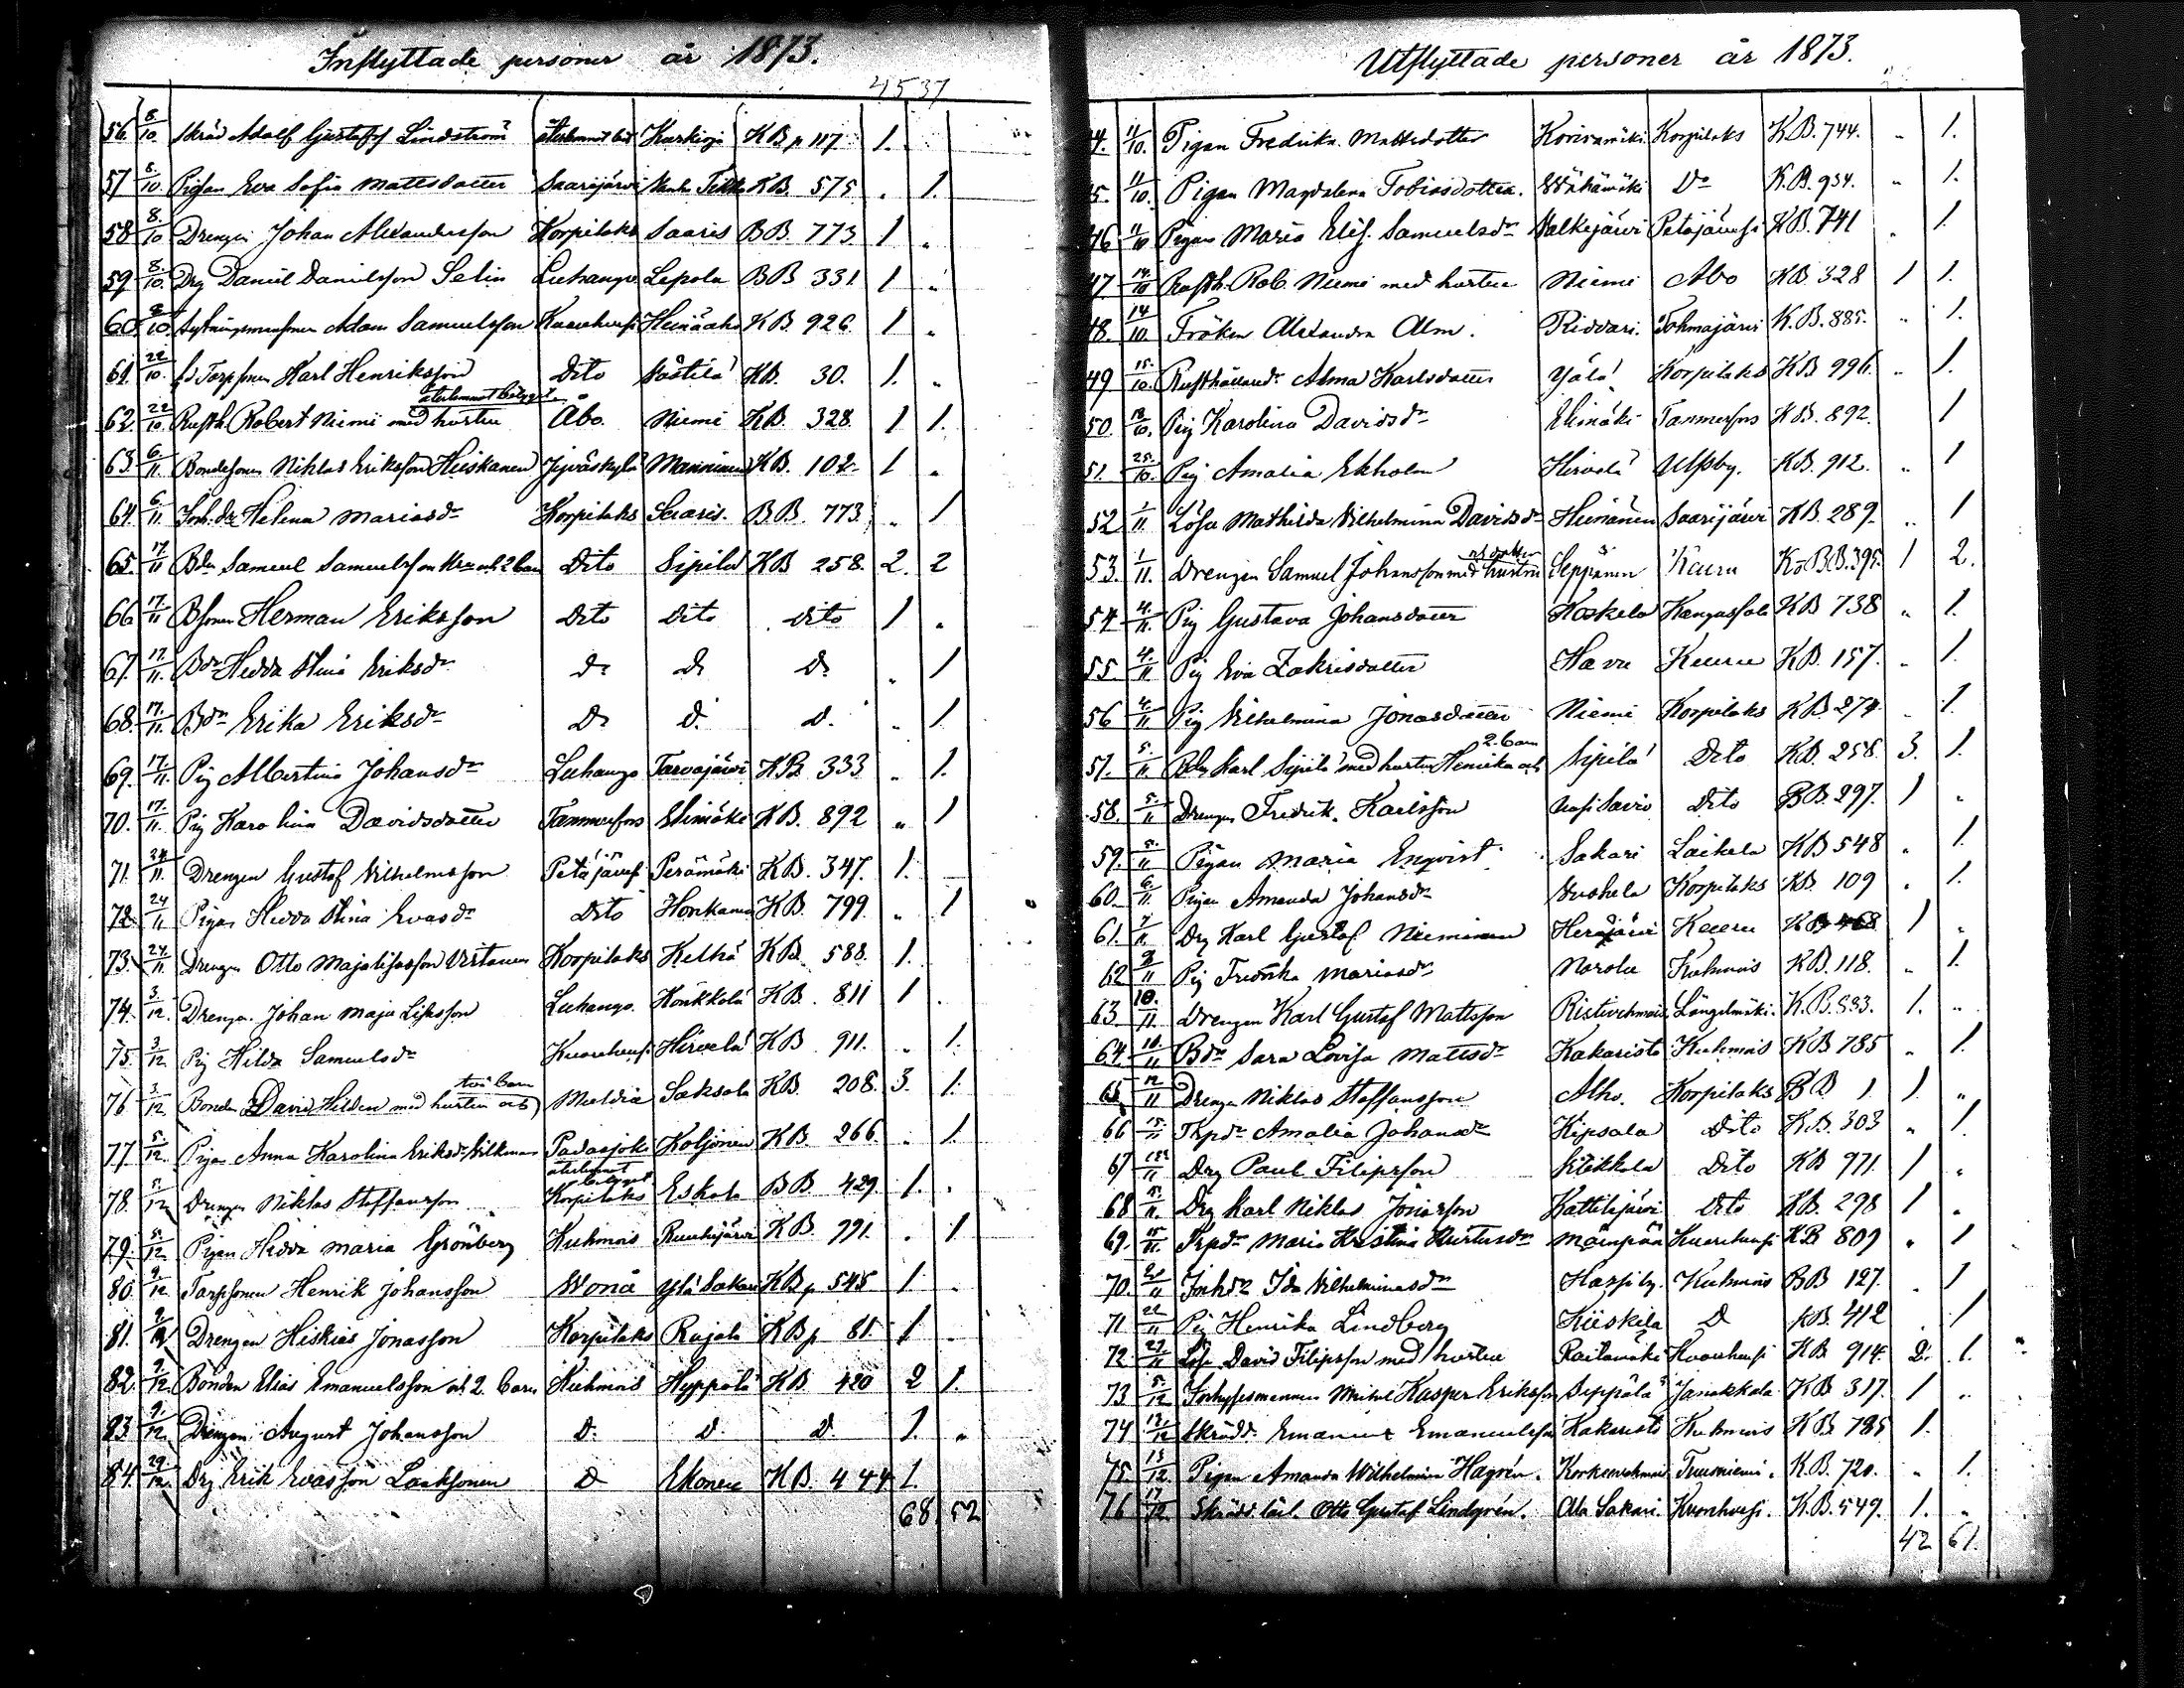 Inflyttade personer år 1873.
4537
56. 8/10. Skräd Adolf Gustafss Lindström Kuskioja KB p 117. 1.
57 8/10. Pigan Eva Sofia Mattsdotter Saarijärvi KB. 575 „ 1.
58 8/10 Drengen Johan Alexandersson Korpilaks Saaris BB. 773 1 „
59 8/10. Drg Daniel Danielsson Selin Luhango Lepola BB 331. 1 „
60 8/10. Adam Samuelsson Kuorehvesi Heinäaho KB. 926. 1 „
61. 22/10. Karl Henriksson Dito KB. 30. 1. „
återkommit
62. 22/10. Rusth. Robert Niemi med hustru Åbo. Niemi KB. 328. 1 1.
63 6/11. Bondesonen Niklas Eriksson Heiskanen Jyväskylä Manninen KB. 102. 1 „
64. 6/11. Inh. dr Helena Mariasdr Korpilaks Saaris. BB. 773. „ 1
65. 17/11 Bdn Samuel Samuelsson och 2 barn Dito Sipilä KB 258. 2. 2
66 17/11 Bsonen Herman Eriksson Dito Dito Dito 1 „
67. 17/11. Bdr Hedda Stina Eriksdr Do Do Do „ 1
68. 17/11. Bdr Erika Eriksdr Do D. D. „ 1.
69. 17/11. Pig Albertina Johansdr Luhango Tarvajärvi KB. 333 „ 1.
70. 17/11. Pig Karolina Davidsdotter Tammerfors Elimäki KB. 892 „ 1
71. 24/11. Drengen Gustaf Vilhelmsson Petäjävesi Perämäki KB. 347. 1.
72. 24/11 Pigan Hedda Stina Evasdr Dito Honkanen KB. 799. „ 1
73. 24/11 Drengen Otto Majalisasson Virtanen Korpilaks Kethä KB 588. 1.
74. 3/12. Dreng. Johan Maja Lisasson Luhango. Honkkola KB. 811 1 .
75. 3/12 Pig Hilda Samuelsdr Kuorehvesi Hirvelä KB 911. „ 1.
två barn
76 3/12 Bonden David Hilden med hustru och Muldia Saksala KB. 208. 3. 1.
77. 5/12. Pigan Anna Karolina Eriksdr Vilkman Padasjoki Koljonen KB. 266. „ 1.
återkommit
78. 5/12 Drengen Niklas Staffansson Korpilaks Eskola BB 429. 1. .
79. 5/12. Pigan Hedda Maria Grönberg Kuhmois Ruuhijärvi KB. 791. . 1
80. 9/12 Torpsonen Henrik Johansson Wona Ylä Sakari KB p 545. 1. .
81. 9/12 Drengen Hiskias Jonasson Korpilaks Rajala KB p 81. 1 .
82. 9/12. Bonden Elias Emanuelsson och 2 barn Kuhmois Hyppölä KB 420 2 1.
83. 9/12. Drengen August Johansson D. D. D 1. „
84. 29/12. Drg Erik Evasson Laaksonen D Ekonen KB. 444 1.
68 52
Utflyttade personer år 1873.
44. 11/10. Pigan Fredrika Mattsdotter Korivamäki Korpilaks KB. 744. „ 1.
45. 11/10. Pigan Magdalena Tobiasdotter. Wähämäki Do K.B. 954. „ 1.
46 11/10 Pigan Maria Elis. Samuelsdr Valkejärvi Petäjävesi KB. 741 „ 1.
47. 14/10 Rusth. Rob. Niemi med hustru Niemi Åbo KB. 328 1 1.
48. 14/10. Fröken Alexandra Alm. Riddari. Tohmajärvi K.B. 885. „ 1.
49 15/10. Rusthålland. Alma Karlsdotter Ylälä Korpilaks KB 996. „ 1.
50. 18/10. Pig Karolina Davidsdr Elimäki Tammerfors KB. 892. 1
51. 25/10. Pig Amalia Ekholm Hirvelä Ulfsby. KB. 912. „ 1
52 1/11. Lösa Mathilda Vilhelmina Davidsdr Heinänen Saarijärvi KB. 289. „ 1
53. 1/11. Drengen Samuel Johansson med hustru Seppänen Keuru BB. 395. 1 2.
54 4/11. Pig Gustava Johansdotter Koskela Kangasala KB 738 „ 1.
55. 4/11 Pig Eva Zakrisdotter Havu Keuru KB. 157. „ 1.
56 4/11 Pig Vilhelmina Jonasdotter Niemi Korpilaks KB. 274. 1.
2. barn
57. 5/11. Bdn Karl Sipilä med hustru Henrika och Sipilä Dito KB. 258. 3. 1.
58. 5/11 Drengen Fredrik Karlsson Uusi Savio Dito BB. 297. 1 „
59. 5/11 Pigan Maria Enqvist Sakari Laikela KB 548 „ 1.
60. 6/11. Pigan Amanda Johansdr Korpilaks KB. 109 . 1.
61. 7/11 Drg Karl Gustaf Nieminen Herajärvi Keuru KB 468 1 „
62 8/11 Pig Fredrika Mariasdr Norola Kuhmois KB. 118. „ 1.
63. 10/11. Drengen Karl Gustaf Mattsson Längelmäki. K.B. 533. 1. „
64 10/11 Bdr Sara Lovisa Mattsdr Kakaristo Kuhmois KB 785 „ 1.
65 12/11 Drengen Niklas Staffansson Alho. Korpilaks BB 1 1. „
66 15/11 Trpdr Amalia Johansdr Hipsala Dito KB. 303 „ 1.
67 15/11 Drg Paul Filipsson Dito KB 971. 1 „
68 15/11. Drg Karl Niklas Jonasson Kattilajärvi Dito KB. 298 1 .
69. 15/11. Trpdr Maria Kristina Kustusdr Mäenpää Kuorehvesi KB 809 „ 1
70. 20/11 Inhdr Ida Vilhelminasdr Kuhmois BB 127. . 1
71 22/11 Pig Henrika Lindberg Kiiskilä D KB. 412 . 1
72 27/11 Lösa David Filipsson med hustru Raitamäki Kuorehvesi KB. 914. 2. 1. „
73 5/12 Kasper Eriksson Seppälä Janakkala KB 317. 1 „
74 13/12 Skrädd. Emanuel Emanuelsson Kakaristo Kuhmois KB. 785 1.
75. 15/12. Pigan Amanda Wilhelmina Hagrén. Tuusniemi. K.B. 720. „ 1.
76 17/12. Skrädd. lärl. Otto Gustaf Lindgrén. Ala Sakari. Kuorehvesi. K.B. 549. 1. „
42 61.